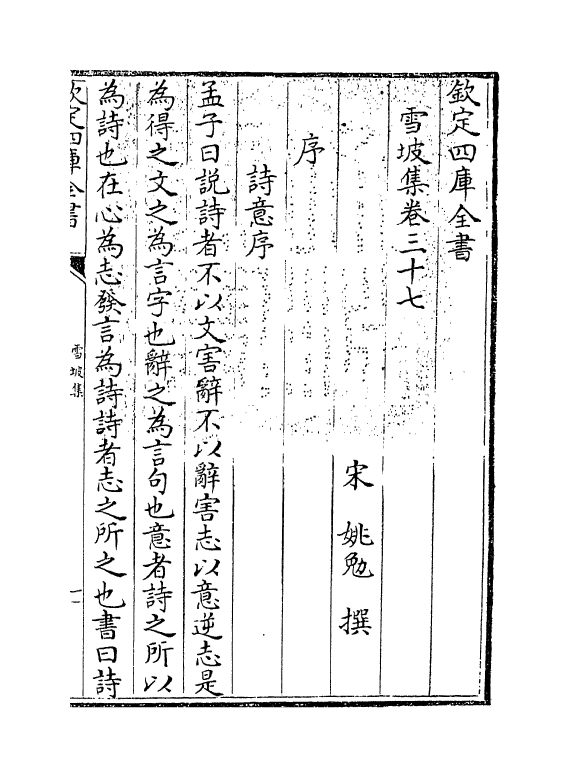 欽定四庫全書
雪坡集卷三十七
宋 姚勉 撰
序
詩意序
孟子曰說詩者不以文害辭不以辭害志以意逆志是
為得之文之為言字也辭之為言句也意者詩之所以
為詩也在心為志發言為詩詩者志之所之也書曰詩
欽定四庫全書
雪坡集
一